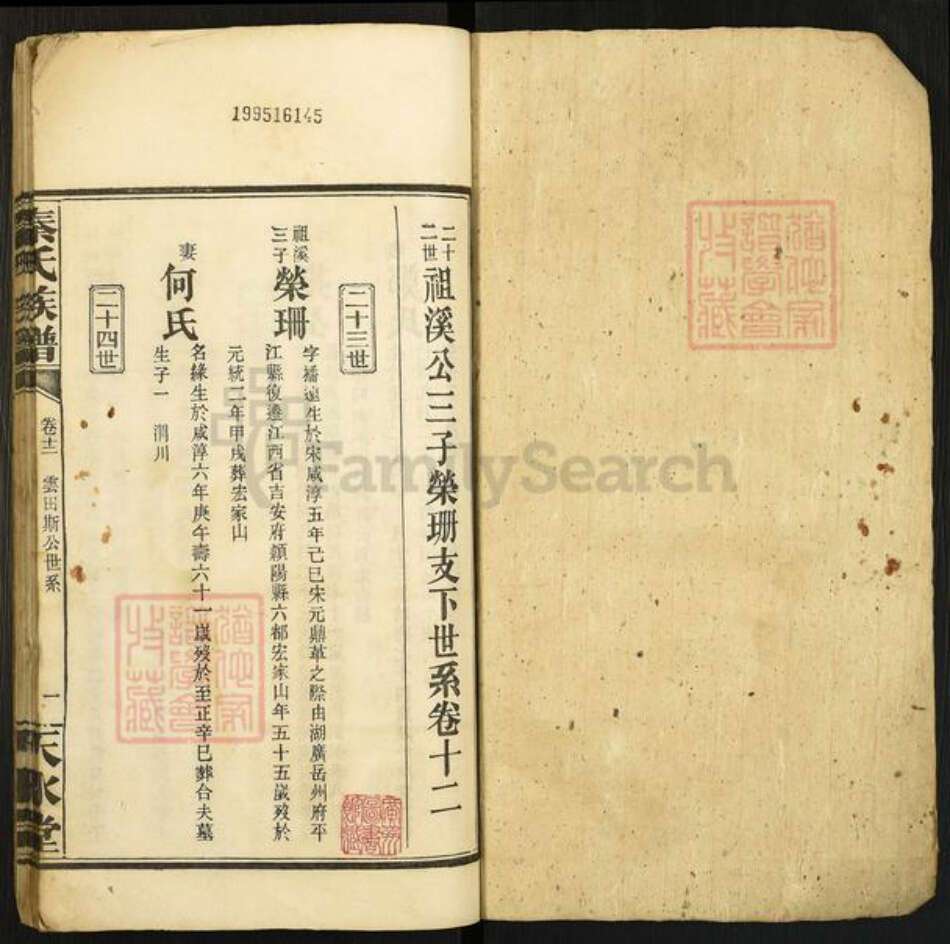 199516145
二十二世祖溪公三子榮珊支下世系卷十二
二十三世
祖溪三子榮珊
字播遠生於宋咸淳五年己巳宋元鼎革之際由湖廣岳州府平
江縣復遷江西省吉安府潁陽縣六都宏家山年五十五歲歿於
元統二年甲戌葬宏家山
妻何氏
名緣生於咸淳六年庚午壽六十一歲歿於至正辛巳葬合夫墓
生子一 渭川
二十四世
秦氏族譜
卷十二 雲田斯公世系
一
天水堂
FamilySearch